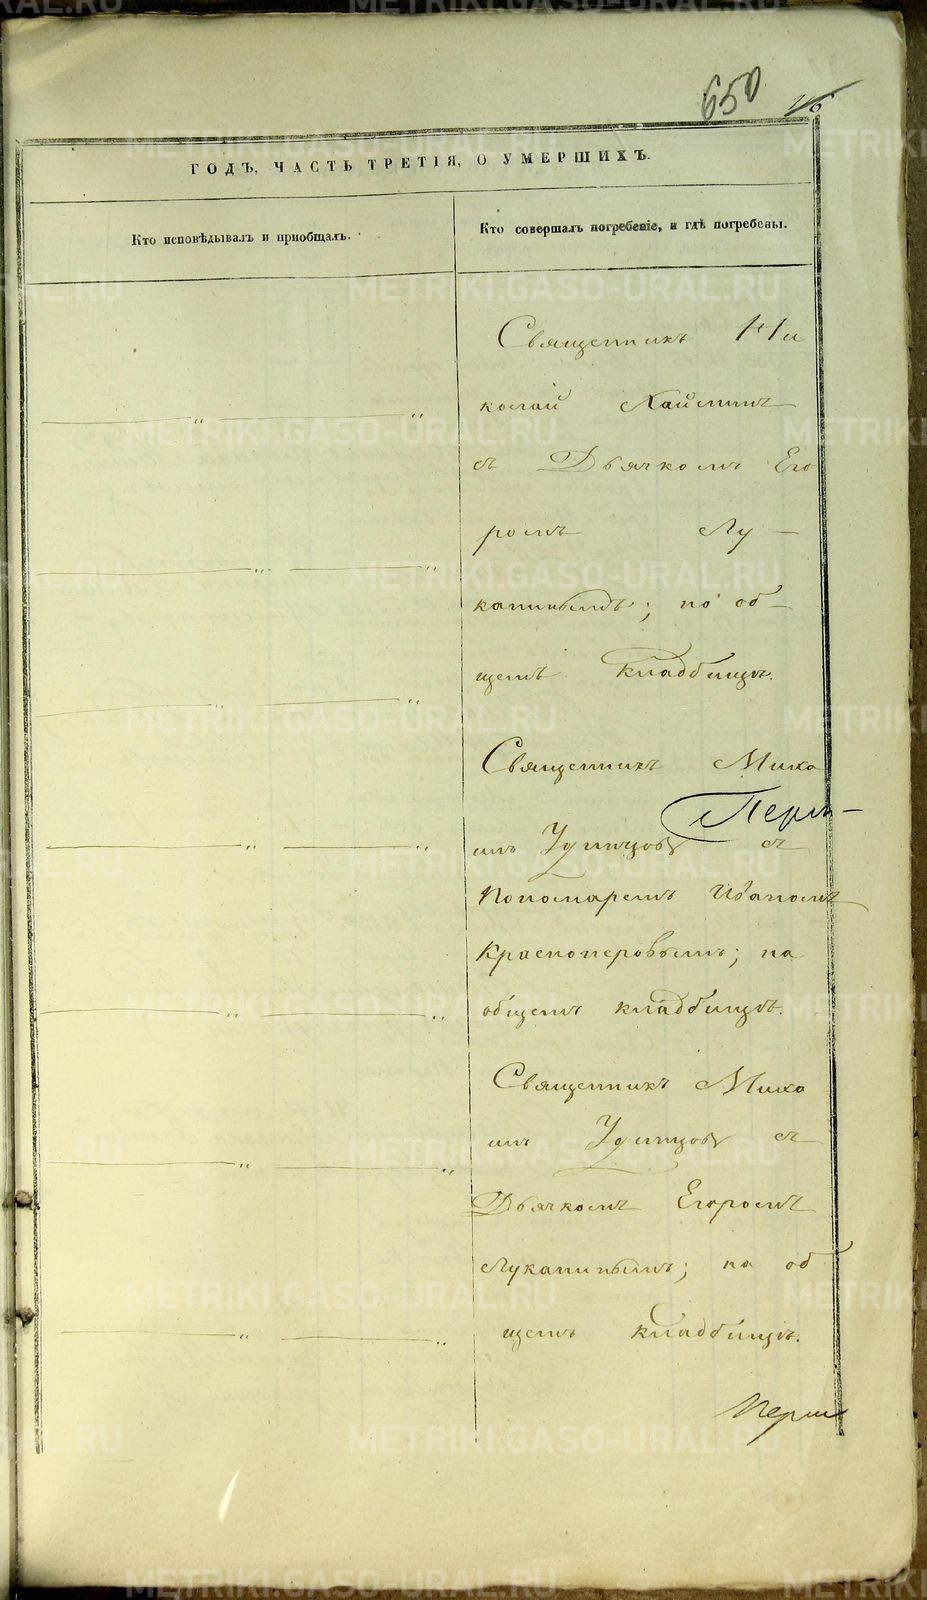 650 46
ГОДЪ, ЧАСТЬ ТРЕТІЯ, О УМЕРШИХЪ.
Кто исповѣдывалъ и приобщалъ.
Кто совершалъ погребеніе, и гдѣ погребены.
Священникъ Ни
колай Хайминъ
съ Дьячкомъ Его
ромъ Лу-
канинымъ; на об-
щемъ кладбищѣ.
Священникъ Миха
илъ Удинцовъ съ
Пономаремъ Иваномъ
Красноперовымъ; на
общемъ кладбищѣ.
Священникъ Миха
илъ Удинцовъ съ
Дьячкомъ Егоромъ
Луканинымъ; на об
щемъ кладбищѣ.
METRIKI.GASO-URAL.RU